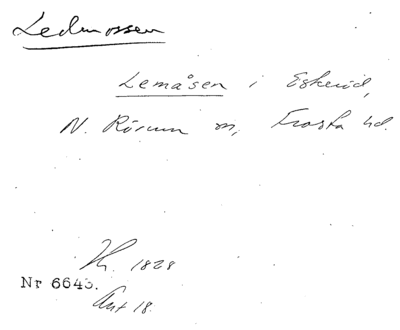 Ledmossen
Lemåsen i Eskeröd,
N. Rörum sn, Frosta hd.
Hr. 1828
Nr 6643.
Akt 18.